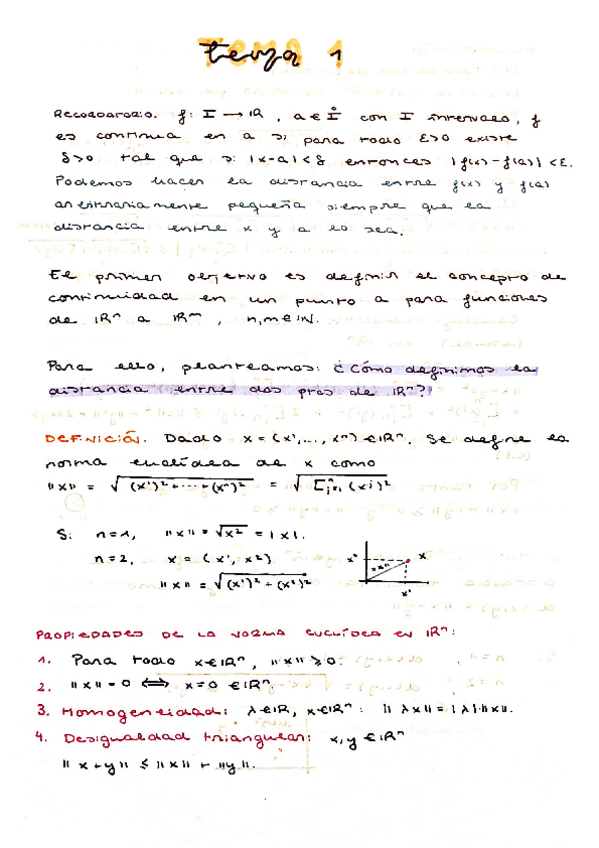 tema 1
RECORDATORIO. f: I → ℝ, a ∈ I̊ con I intervalo, f
es continua en a si para todo ε>0 existe
δ>0 tal que si |x-a|<δ entonces |f(x)-f(a)|<ε.
Podemos hacer la distancia entre f(x) y f(a)
arbitrariamente pequeña siempre que la
distancia entre x y a lo sea.
El primer objetivo es definir el concepto de
continuidad en un punto a para funciones
de ℝⁿ a ℝᵐ, n,m ∈ ℕ.
Para ello, planteamos: ¿Cómo definimos la
distancia entre dos ptos de ℝⁿ?
DEFINICIÓN. Dado x = (x¹,..., xⁿ) ∈ ℝⁿ, se define la
norma euclídea de x como
||x|| = √((x¹)² + ... + (xⁿ)²) = √(Σⁿⱼ₌₁ (xʲ)²)
Si n=1, ||x|| = √x² = |x|.
n=2, x = (x¹, x²)
||x|| = √((x¹)² + (x²)²)
x² ||x|| x
x¹
PROPIEDADES DE LA NORMA EUCLÍDEA EN ℝⁿ:
1. Para todo x ∈ ℝⁿ, ||x|| ≥ 0.
2. ||x|| = 0 ⟺ x = 0 ∈ ℝⁿ
3. Homogeneidad: λ ∈ ℝ, x ∈ ℝⁿ: ||λx|| = |λ|·||x||.
4. Desigualdad triangular: x, y ∈ ℝⁿ
||x + y|| ≤ ||x|| + ||y||.